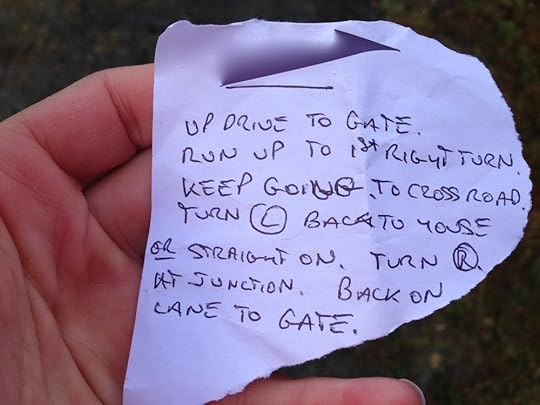 UP DRIVE TO GATE.
RUN UP TO 1st RIGHT TURN.
KEEP GOING TO CROSS ROAD.
TURN Ⓛ BACK TO YOUSE
OR STRAIGHT ON. TURN Ⓡ.
AT JUNCTION. BACK ON
LANE TO GATE.